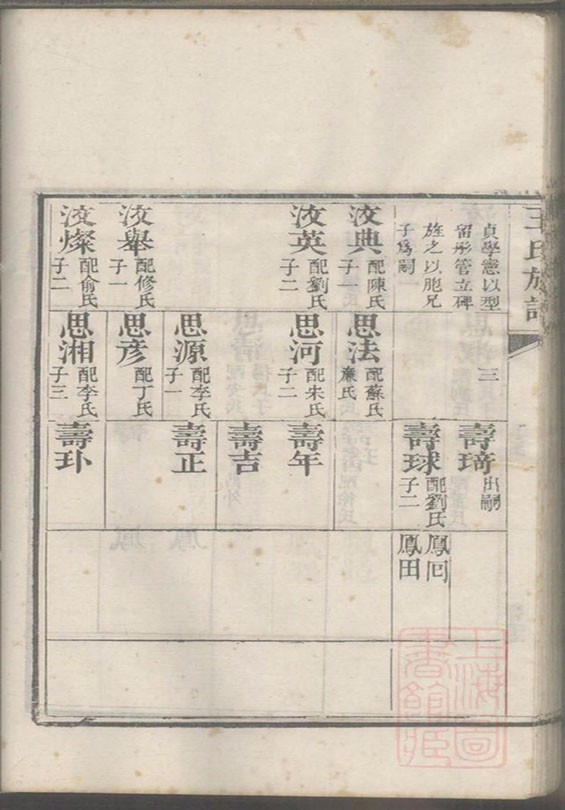 王氏族譜
貞學憲以型
留彤管立碑
旌之以胞兄
子爲嗣 一
汝典 配陳氏 子一
汝英 配劉氏 子二
汝舉 配修氏 子一
汝燦 配俞氏 子二
三
思法 配蘇氏 氏
思河 配朱氏 子二
思源 配李氏 子一
思彥 配丁氏
思湘 配李氏 子三
壽琦 出嗣
壽球 配劉氏 子二
壽年
壽吉
壽正
壽
鳳囘
鳳田
上海圖
書館藏